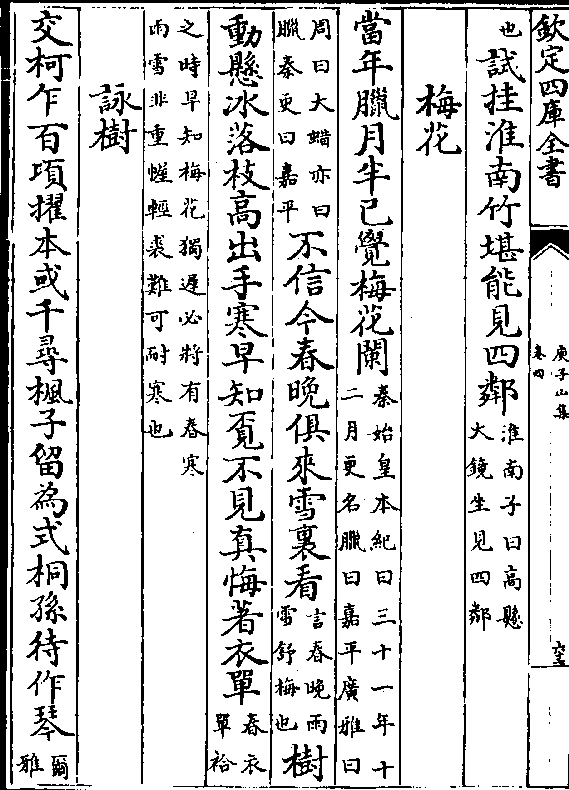 欽定四庫全書
庾子山集
卷四
也試挂淮南竹堪能見四鄰淮南子曰高懸
大鏡坐見四鄰
梅花
當年臘月半已覺梅花闌秦始皇本紀曰三十一年十
二月更名臘曰嘉平廣雅曰
周曰大蜡亦曰
臘秦更曰嘉平不信今春晚俱來雪裏看言春晚雨
雪舒梅也樹
動懸冰落枝高出手寒早知覔不見真悔著衣單春衣
單袷
之時早知梅花獨遲必將有春寒
雨雪非重蠟輕裘難可耐寒也
詠樹
交柯乍百頃擢本或千尋楓子留為式桐孫待作琴爾
雅